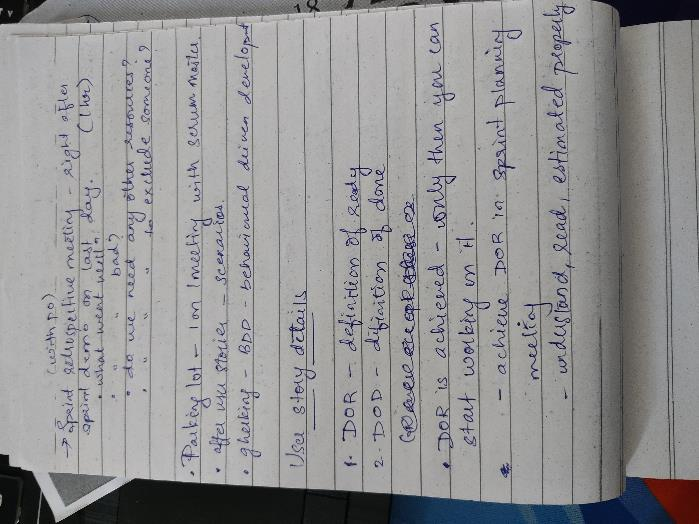 (with po)
→ Sprint retrospective meeting - right after
sprint demo on last day. (1hr)
• what went well?
• " " bad?
• do we need any other resources?
• " " " to exclude someone?
• Parking lot - 1 on 1 meeting with scrum master
• after use stories - scenarios.
• gherking - BDD - behavioural driven developmt
User story details
1. DOR - definition of ready
2. DOD - difinition of done
• DOR is achieved - only then you can
start working on it.
- achieve DOR in sprint planning
meeting
- understand, read, estimated properly